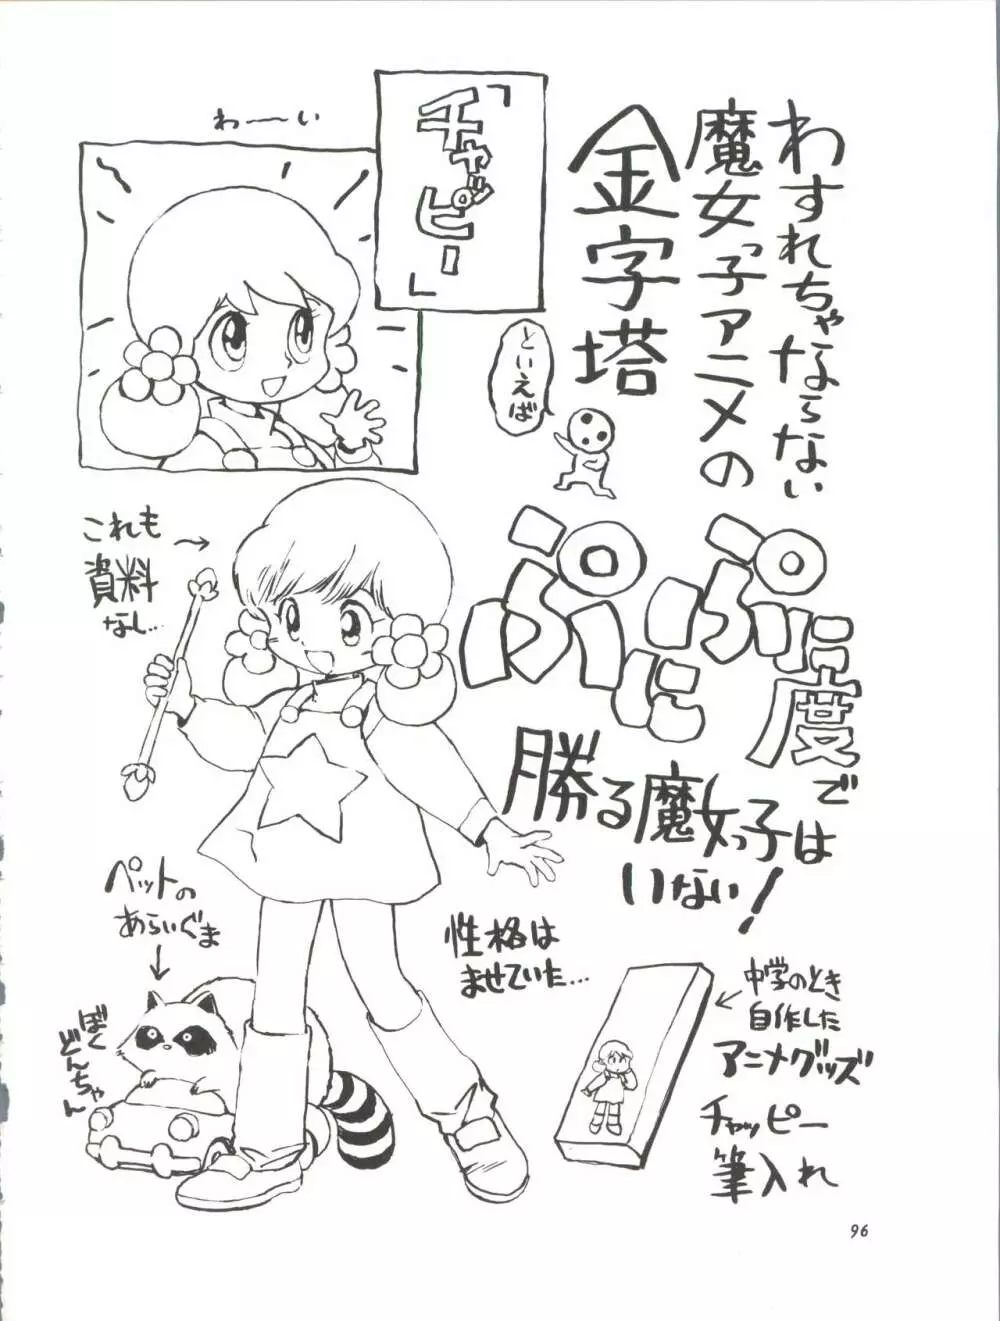 わすれちゃならない
魔女っ子アニメの
金字塔
といえば
「チャッピー」
わーい
ぷにぷに度では
勝る魔女っ子
いない!
これも
資料
なし...
ペットの
あらいぐま
ぼく
どんちゃん
性格は
ませていた...
中学のとき
自作した
アニメグッズ
チャッピー
筆入れ
96